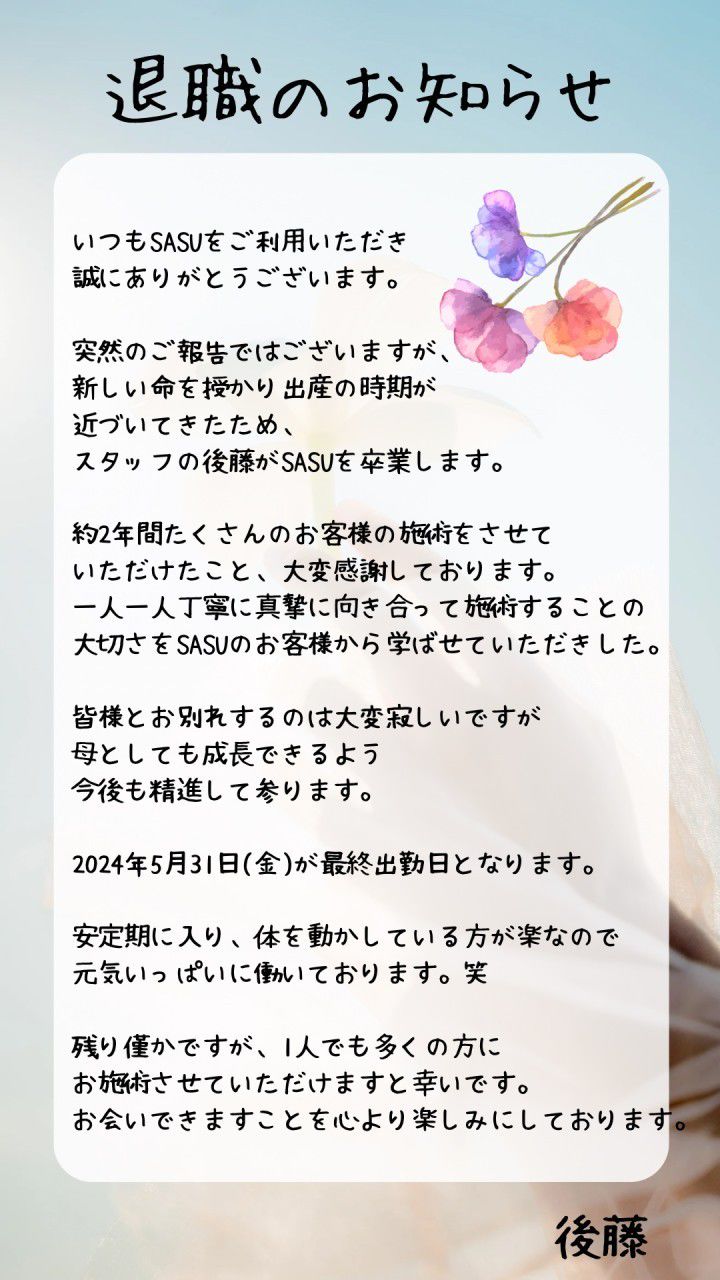 退職のお知らせ
いつもSASUをご利用いただき
誠にありがとうございます。
突然のご報告ではございますが、
新しい命を授かり出産の時期が
近づいてきたため、
スタッフの後藤がSASUを卒業します。
約2年間たくさんのお客様の施術をさせて
いただけたこと、大変感謝しております。
一人一人丁寧に真摯に向き合って施術することの
大切さをSASUのお客様から学ばせていただきした。
皆様とお別れするのは大変寂しいですが
母としても成長できるよう
今後も精進して参ります。
2024年5月31日(金)が最終出勤日となります。
安定期に入り、体を動かしている方が楽なので
元気いっぱいに働いております。笑
残り僅かですが、1人でも多くの方に
お施術させていただけますと幸いです。
お会いできますことを心より楽しみにしております。
後藤